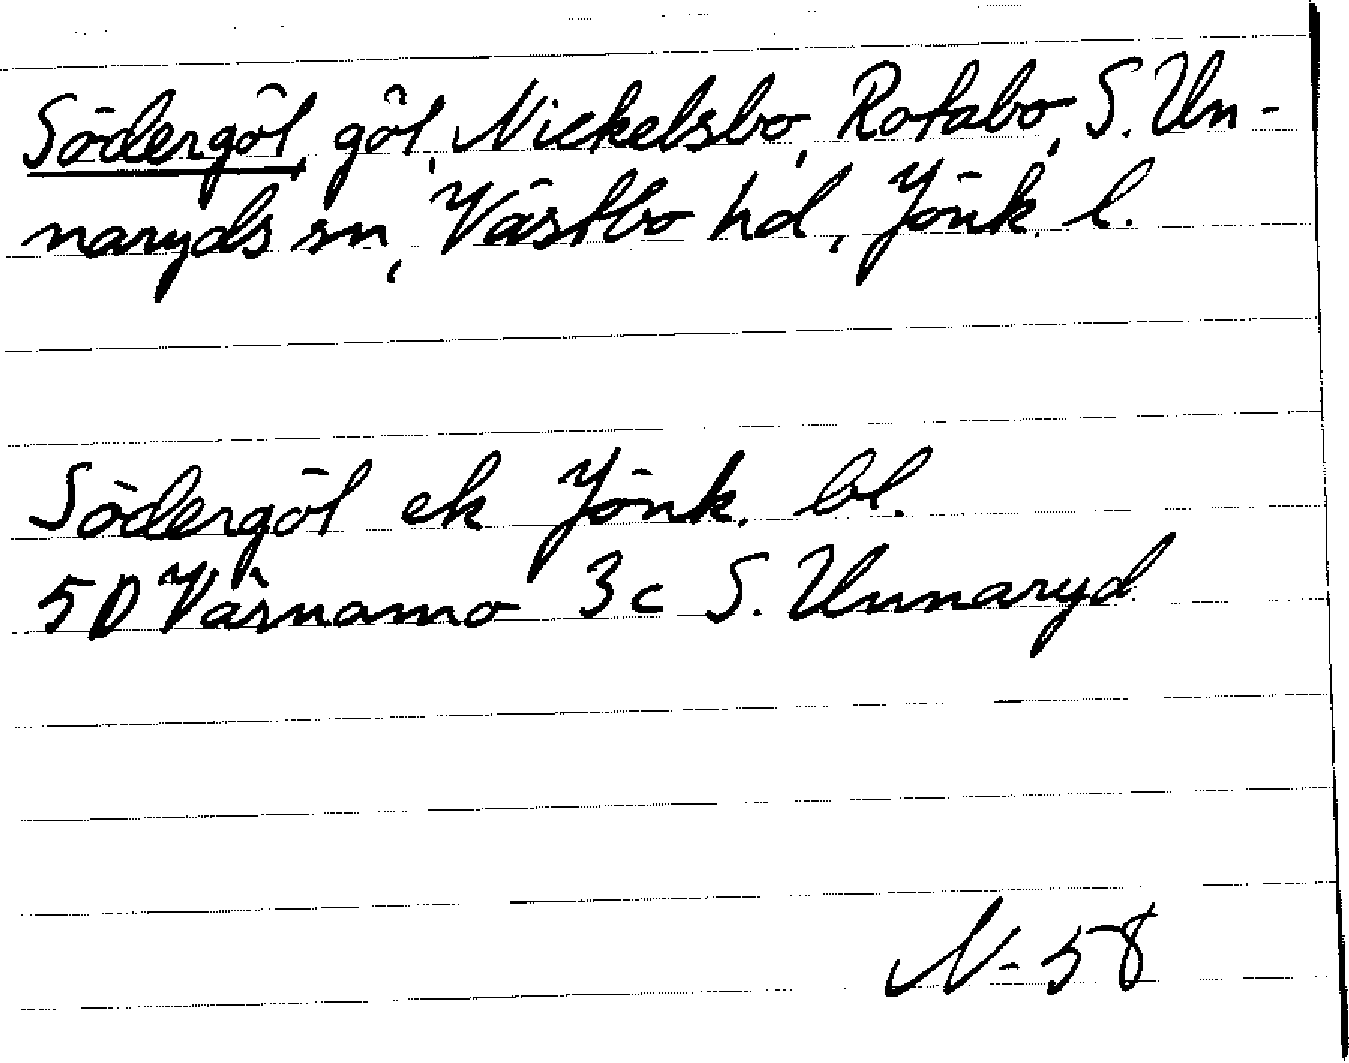 Södergöl, göl, Nickelsbo, Rotabo, S. Un-
naryds sn, Västbo hd, Jönk. l.
Södergöl ek Jönk. bl.
5D Värnamo 3c S. Unnaryd
N-58